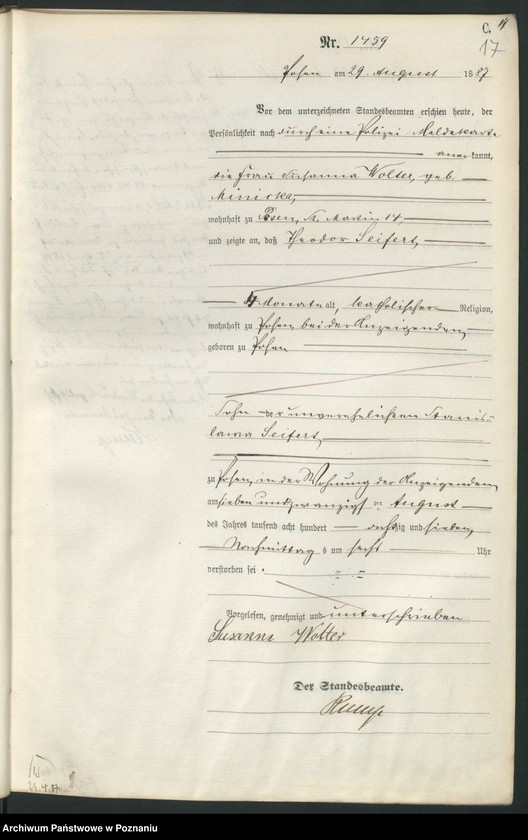 C. 14
17
Nr. 1459
Posen am 29. August 1887
Vor dem unterzeichneten Standesbeamten erschien heute, der
Persönlichkeit nach durch eine Polizei-Meldekarte
anerkannt,
die Frau Susanna Wolter, geb.
Minicka,
wohnhaft zu Posen, St. Martin 14
und zeigte an, daß Theodor Seifert,
4 Monate alt, katholischer Religion,
wohnhaft zu Posen bei der Anzeigenden,
geboren zu Posen
Sohn der unverehelichten Stanis-
lawa Seifert,
zu Posen, in der Wohnung der Anzeigenden,
am sieben und zwanzigsten August
des Jahres tausend acht hundert achtzig und sieben,
Nachmittags um sechs Uhr
verstorben sei.
Vorgelesen, genehmigt und unterschrieben
Susanna Wolter
Der Standesbeamte.
Archiwum Państwowe w Poznaniu